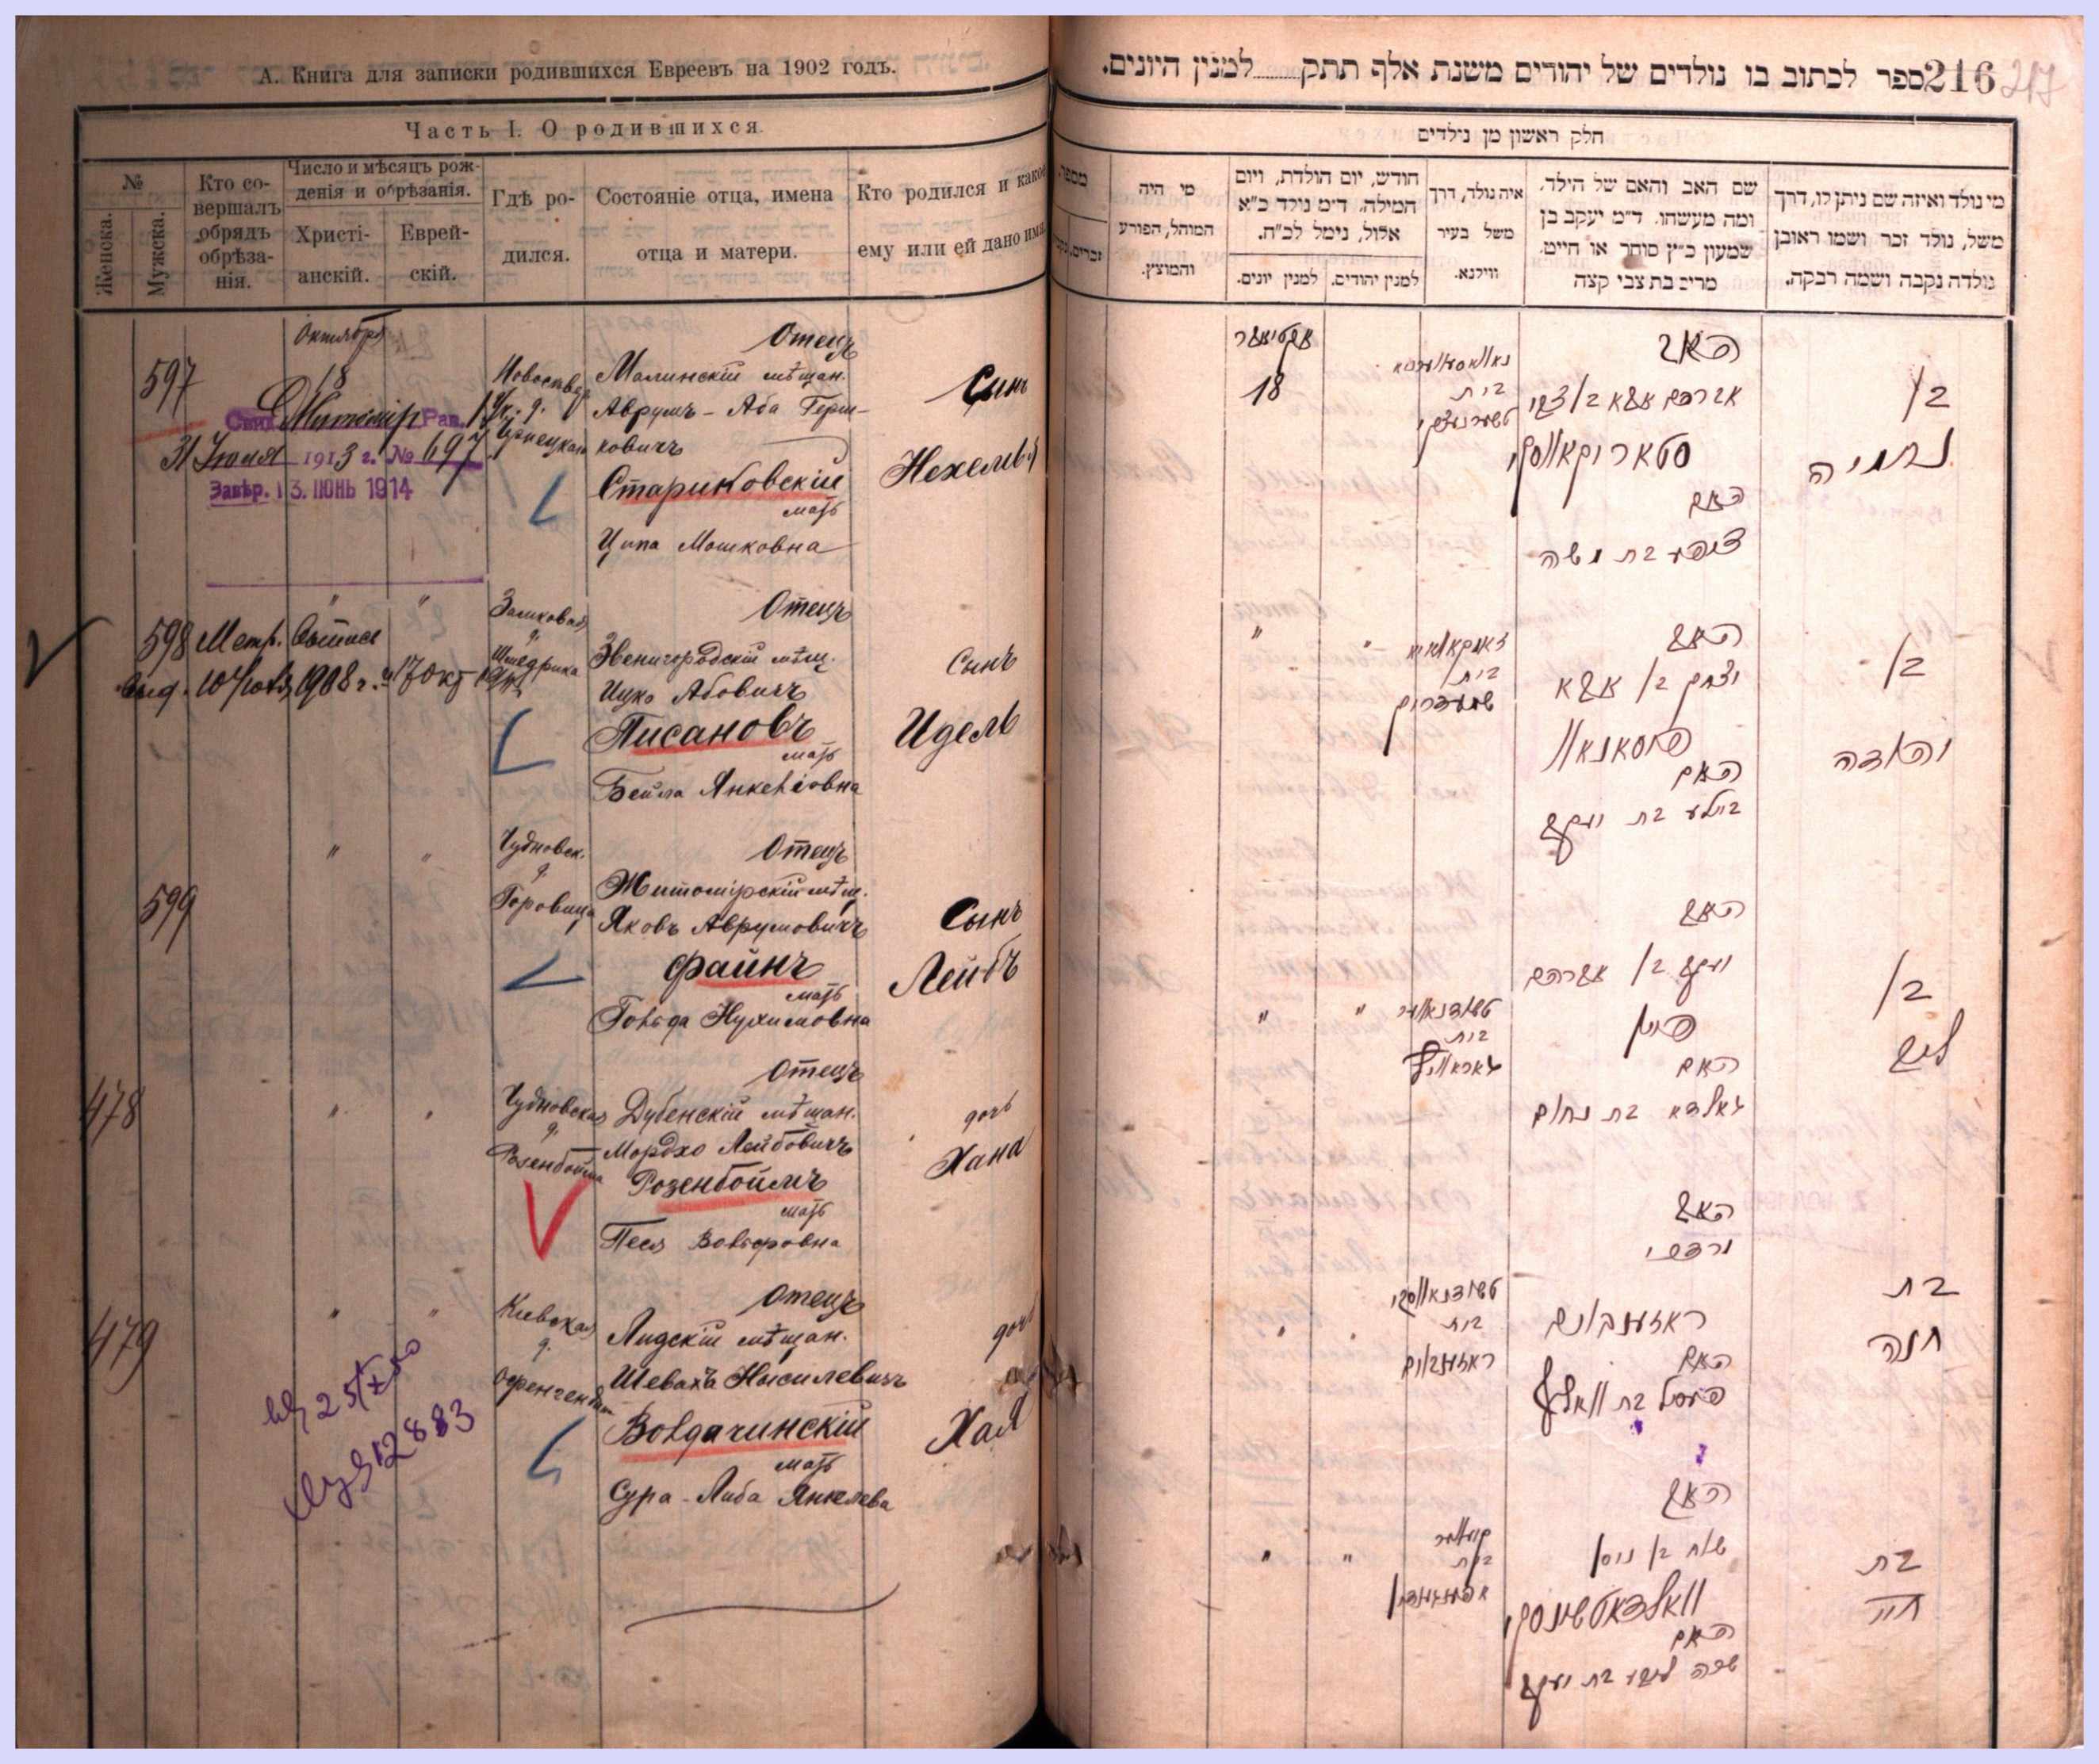 А. Книга для записки родившихся Евреевъ на 1902 годъ.
Часть I. О родившихся.
№
Женска.
Мужска.
Кто со-
вершалъ
обрядъ
обрѣза-
нія.
Число и мѣсяцъ рож-
денія и обрѣзанія.
Христі-
анскій.
Еврей-
скій.
Гдѣ ро-
дился.
Состояніе отца, имена
отца и матери.
Кто родился и какое
ему или ей дано имя.
Октября
597
18
Отецъ
Малинскій мѣщан.
Аврумъ-Аба Герш-
ковичъ
Стариковскій
мать
Ципа Мошковна
Сынъ
Нехемья
Житомір Рав.
31 Іюля 1913 г. № 697
Завѣр. 13. ІЮНЬ 1914
598
Метр. Выписъ
Выд. 1908 г.
Замковая
д.
Отецъ
Звенигородскій мѣщ.
Ицко Абовичъ
Писановъ
мать
Бейла Янкелевна
Сынъ
Идель
599
" "
Чудновск.
д.
Горовица
Отецъ
Житомірскій мѣщ.
Яковъ Аврумовичъ
Файнъ
мать
Гольда Нухимовна
Сынъ
Лейбъ
478
" "
Чудновская
д.
Розенбойма
Отецъ
Дубенскій мѣщан.
Мордхо Лейбовичъ
Розенбоймъ
мать
Песя Вольфовна
дочь
Хана
479
" "
Кіевская
д.
Отецъ
Лидскій мѣщан.
Шевахъ Нисилевичъ
Волдачинскій
мать
Сура-Либа Янкелева
дочь
Хая
12883
216 ספר לכתוב בו נולדים של יהודים משנת אלף תתק למנין היונים.
217
חלק ראשון מן נילדים
מספר
זכרים
מי היה
המוהל, הפורע
והמוצץ.
חודש, יום הולדת, ויום
המילה. ד״מ נילד כ״א
אלול, נימל לכ״ח.
למנין יהודים.
למנין יונים.
איה נולד, דרך
משל בעיר
ווילנא.
שם האב והאם של הילד,
ומה מעשהו. ד״מ יעקב בן
שמעון כ״ץ סוחר או חייט.
מרים בת צבי קצה
מי נולד ואיזה שם ניתן לו, דרך
משל, נולד זכר ושמו ראובן
נולדה נקבה ושמה רבקה.
18
בית
האב
אברהם אבא בן צבי
סטאריקאווסקי
האם
ציפע בת משה
בן
נחמיה
בית
האב
יצחק בן אבא
פיסאנאוו
האם
ביילע בת יעקב
בן
יהודה
בית
האב
יעקב בן אברהם
פיין
האם
גאלדא בת נחום
בן
ליב
טשודנאווסקי
בית
ראזענבוים
האב
מרדכי
ראזענבוים
האם
פעסל בת וואלף
בת
חנה
בית
האב
שבח בן ניסן
וואלדאטשינסקי
האם
שרה ליבע בת יעקב
בת
חיי